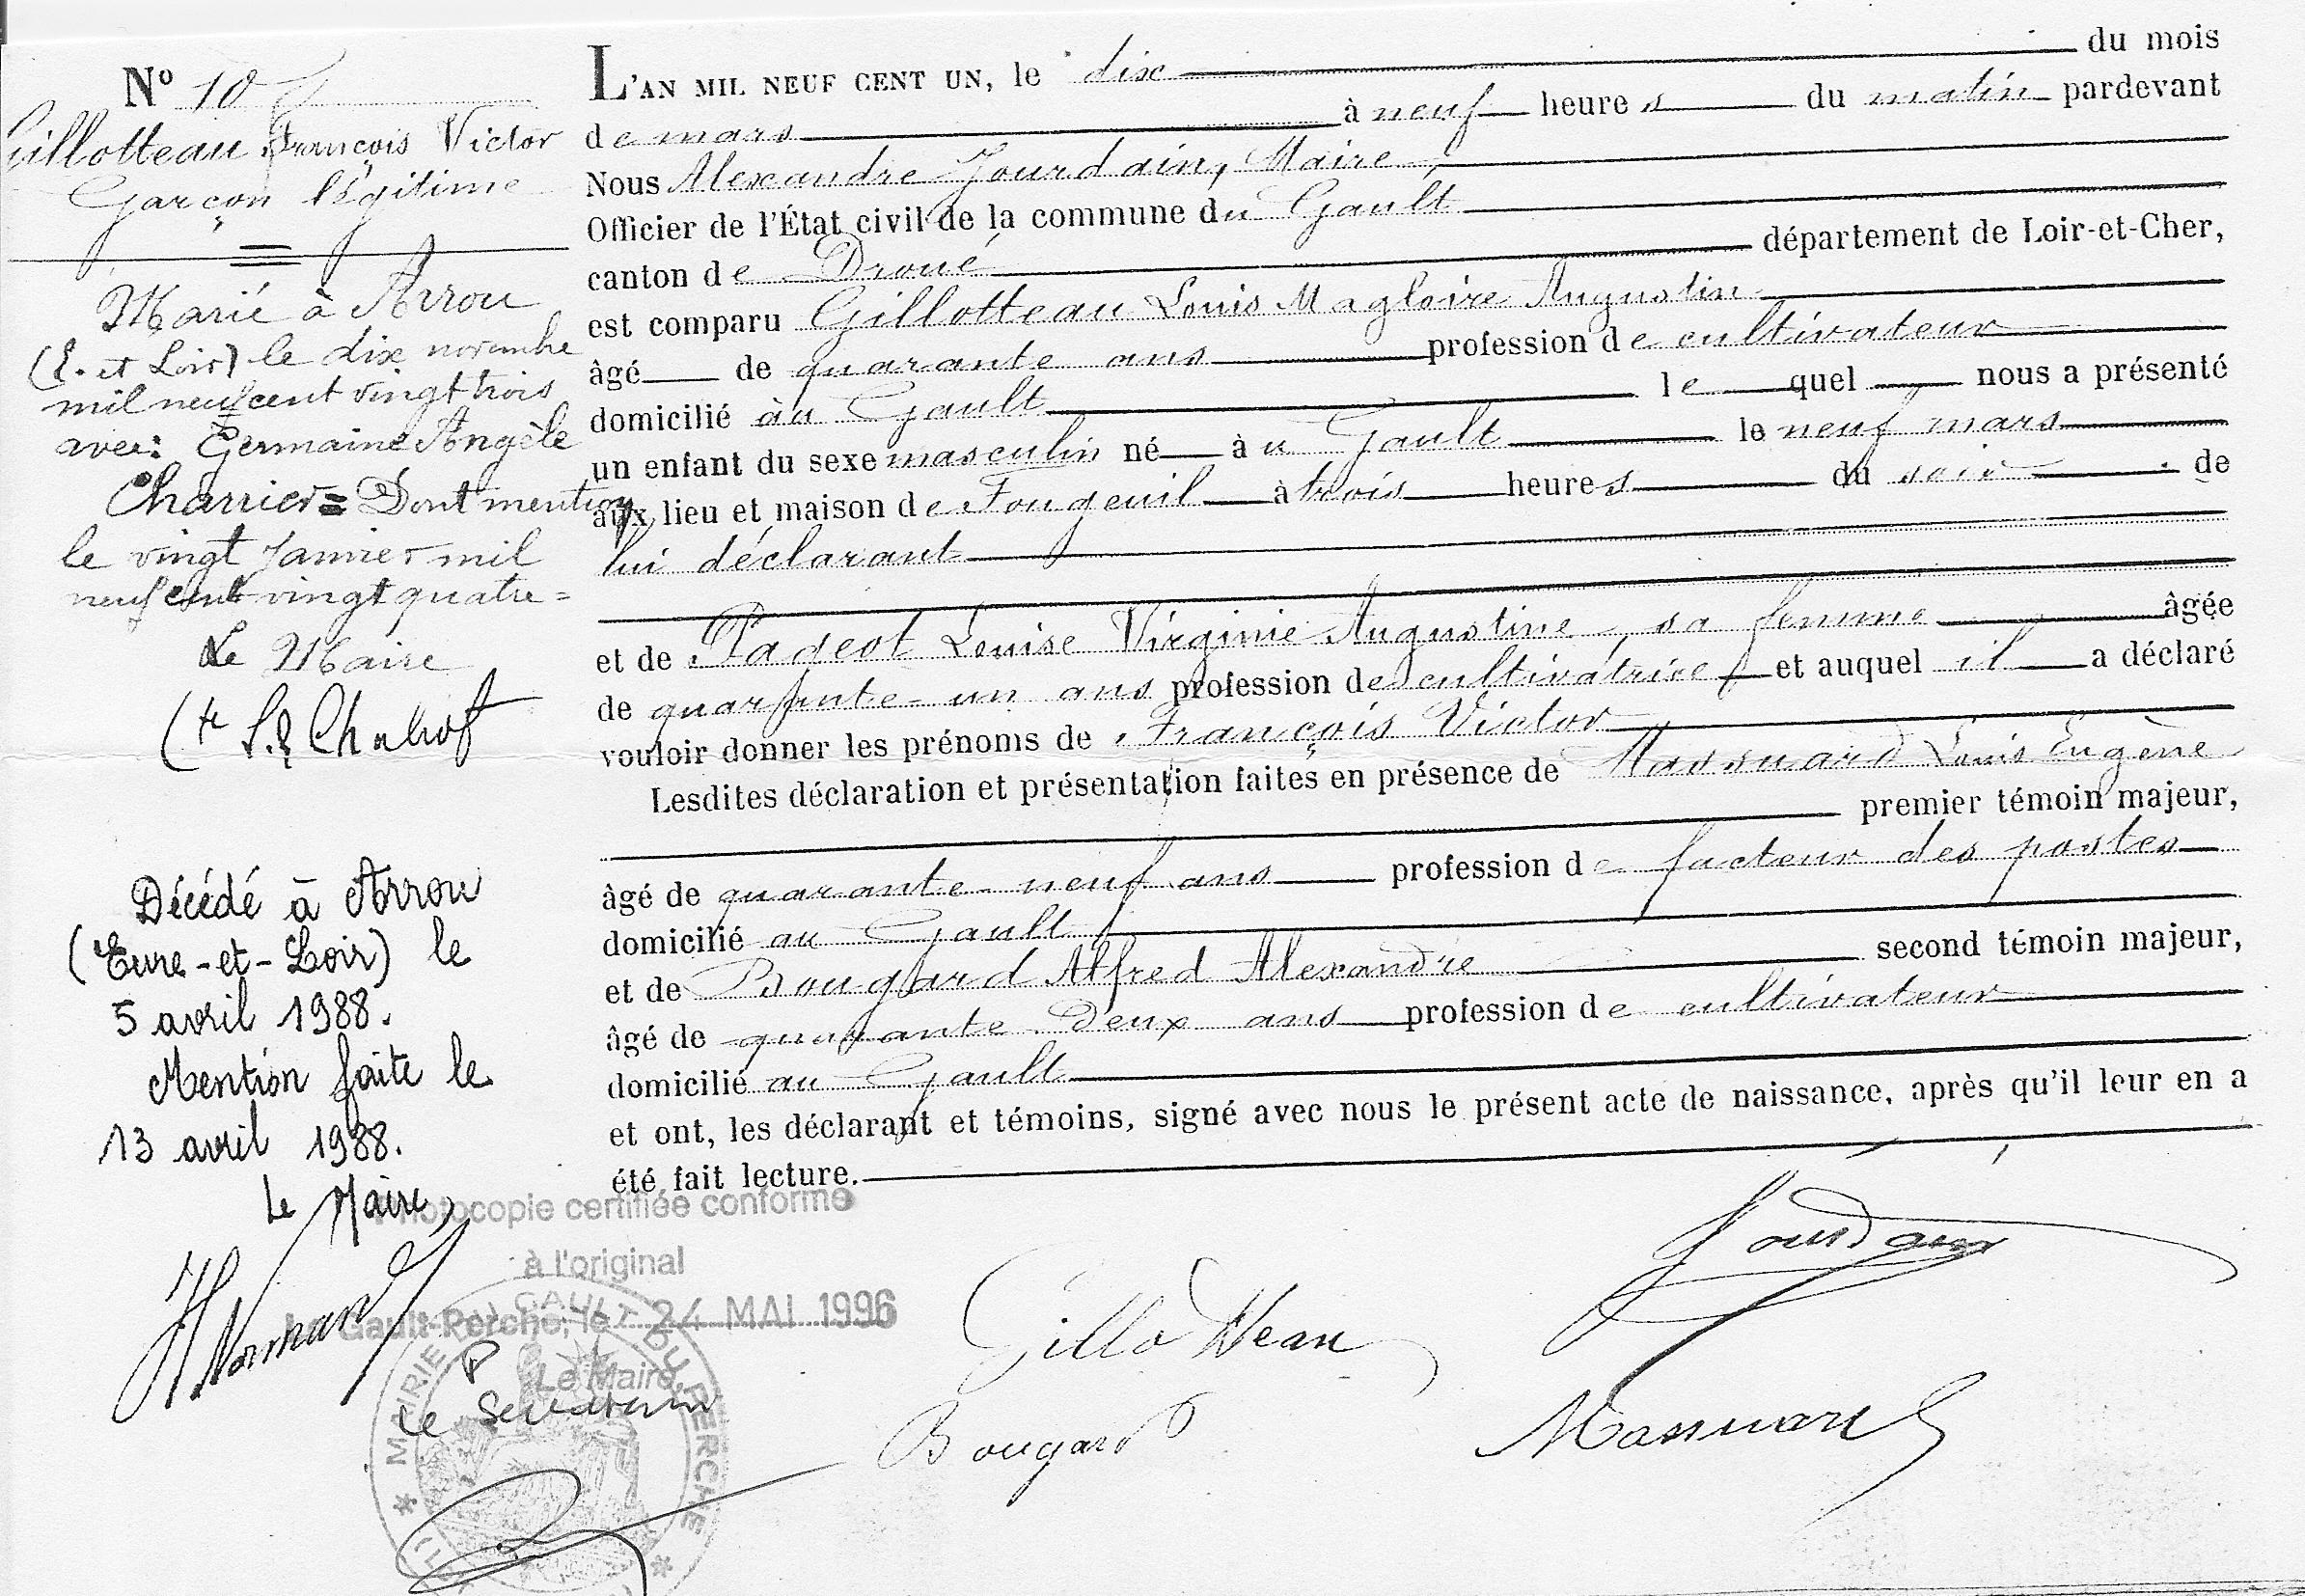 N° 10
Gillotteau François Victor
Garçon légitime
Marié à Arrou
(E. et Loir) le dix novembre
mil neuf cent vingt trois
avec: Germaine Angèle
Charrier = Dont mention
le vingt Janvier mil
neuf cent vingt quatre =
Le Maire
Décédé à Arrou
(Eure-et-Loir) le
5 avril 1988.
Mention faite le
13 avril 1988.
Le Maire,
L'AN MIL NEUF CENT UN, le dix du mois
de mars à neuf heures du matin pardevant
Nous Alexandre Jourdain, Maire,
Officier de l'État civil de la commune du Gault
canton de Droué département de Loir-et-Cher,
est comparu Gillotteau Louis Magloire Augustin
âgé de quarante ans profession de cultivateur
domicilié au Gault lequel nous a présenté
un enfant du sexe masculin né au Gault le neuf mars
aux lieu et maison de Fougeuil à trois heures du soir de
lui déclarant
et de Pageot Louise Virginie Augustine, sa femme âgée
de quarante-un ans profession de cultivatrice et auquel il a déclaré
vouloir donner les prénoms de François Victor
Lesdites déclaration et présentation faites en présence de Massuard Louis Eugène
premier témoin majeur,
âgé de quarante-neuf ans profession de facteur des postes
domicilié au Gault
et de Bougard Alfred Alexandre second témoin majeur,
âgé de quarante-deux ans profession de cultivateur
domicilié au Gault
et ont, les déclarant et témoins, signé avec nous le présent acte de naissance, après qu'il leur en a
été fait lecture.
Photocopie certifiée conforme
à l'original
Le Gault-Perche, le 24 MAI 1996
P Le Maire,
Le Secrétaire
MAIRIE DU GAULT DU PERCHE
Normand
Jourdain
Gillotteau
Bougard
Massuard